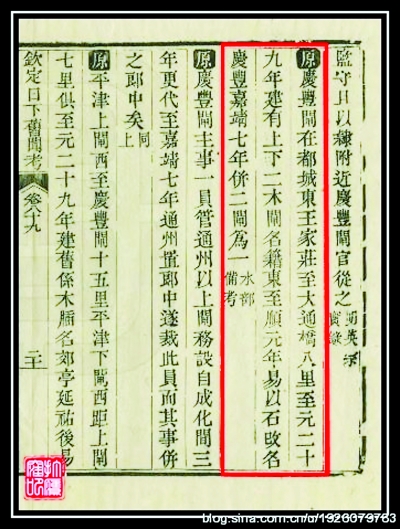 監守且以隸附近慶豐閘官從之 明英宗實錄
原慶豐閘在都城東王家莊至大通橋八里至元二十
九年建有上下二木閘名籍東至順元年易以石改名
慶豐嘉靖七年併二閘為一 水部備考
原慶豐閘主事一員管通州以上閘務設自成化間三
年更代至嘉靖七年通州置郎中遂裁此員而其事併
之郎中矣 同上
原平津上閘西至慶豐閘十五里平津下閘西距上閘
七里俱至元二十九年建舊係木牐名郊亭延祐後易
欽定日下舊聞考 卷八十九 二十
blog.sina.com.cn/u/1926079763